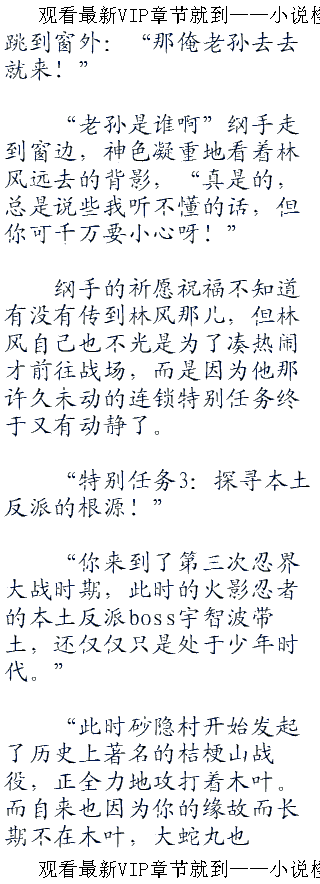 观看最新VIP章节就到——小说榜
跳到窗外：“那俺老孙去去
就来！”
“老孙是谁啊”纲手走
到窗边，神色凝重地看着林
风远去的背影，“真是的，
总是说些我听不懂的话，但
你可千万要小心呀！”
纲手的祈愿祝福不知道
有没有传到林风那儿，但林
风自己也不光是为了凑热闹
才前往战场，而是因为他那
许久未动的连锁特别任务终
于又有动静了。
“特别任务3：探寻本土
反派的根源！”
“你来到了第三次忍界
大战时期，此时的火影忍者
的本土反派boss宇智波带
土，还仅仅只是处于少年时
代。”
“此时砂隐村开始发起
了历史上著名的桔梗山战
役，正全力地攻打着木叶。
而自来也因为你的缘故而长
期不在木叶，大蛇丸也
观看最新VIP章节就到——小说